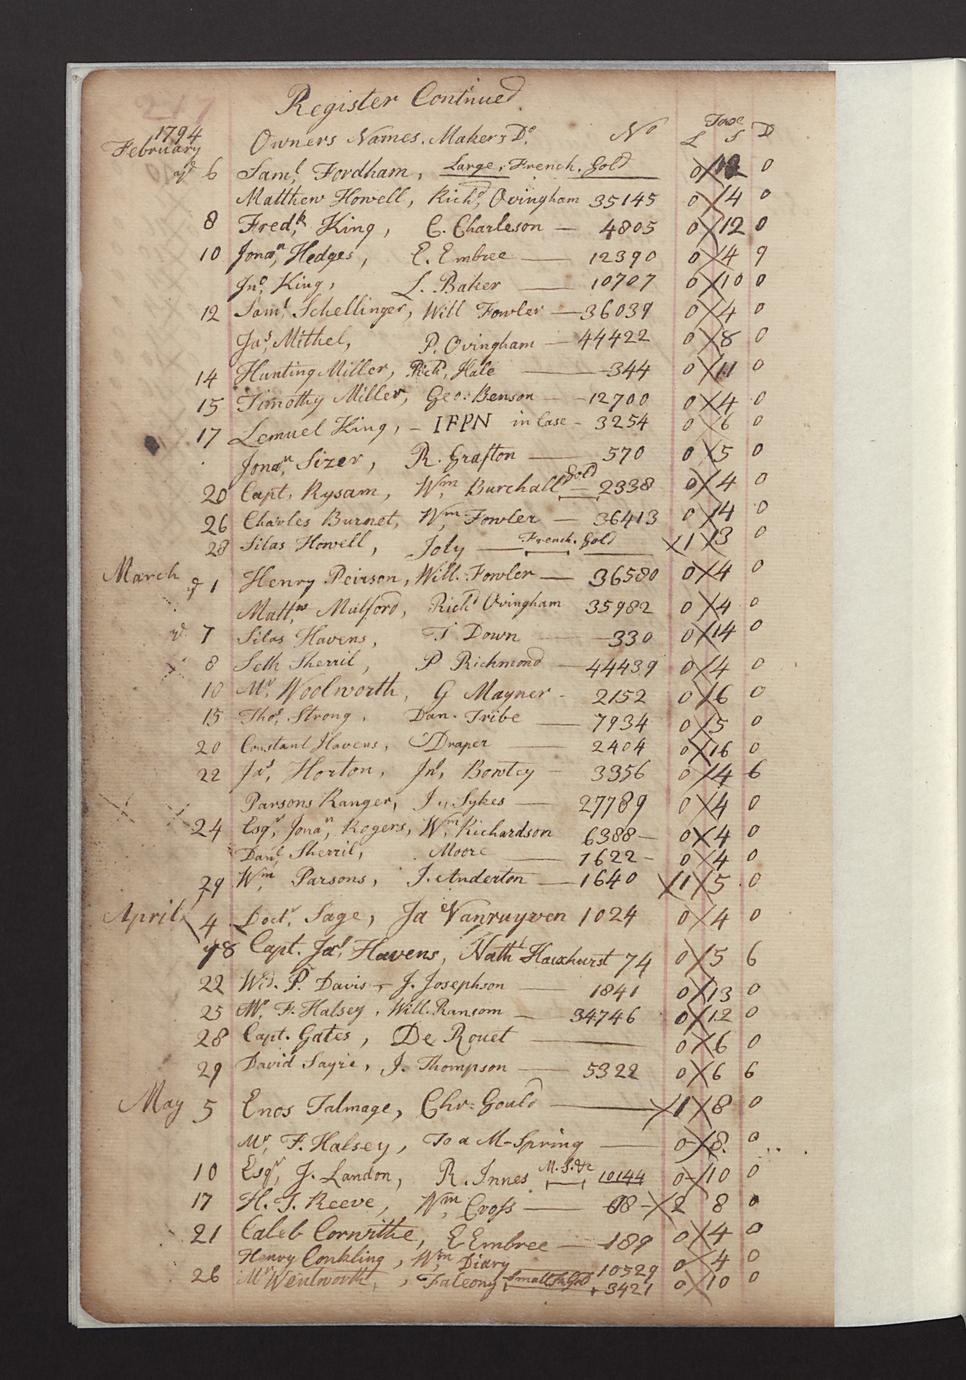 217
Register Continued
1794 Owners Names. Makers Do. No Taxe
February L S D
6 Saml. Fordham, Large, French. Gold 0 12 0
Matthew Howell, Richd. Ovingham 35145 0 4 0
8 Fredk. King, C. Charleson — 4805 0 12 0
10 Jonan. Hedges, E. Embree — 12390 0 4 9
Jno. King, L. Baker — 10707 0 10 0
12 Saml. Schellinger, Will Fowler — 36039 0 4 0
Jas. Mithel, P. Ovingham — 44422 0 8 0
14 Hunting Miller, Richd. Hale — 344 0 11 0
15 Timothy Miller, Geo. Benson — 12700 0 4 0
17 Lemuel King, – IFPN in Case – 3254 0 6 0
Jonan. Sizer, R. Grafton — 570 0 5 0
20 Capt. Rysam, Wm. Burchall Gold 2338 0 4 0
26 Charles Burnet, Wm. Fowler — 36413 0 14 0
28 Silas Howell, Joly — French. Gold 1 13 0
March 1 Henry Peirson, Will. Fowler — 36580 0 4 0
Mattw. Mulford, Richd. Ovingham 35982 0 4 0
7 Silas Havens, T Down — 330 0 14 0
8 Seth Sherril, P Richmond — 44439 0 4 0
10 Mr. Woolworth, G Mayner – 2152 0 6 0
15 Thos. Strong, Dan. Tribe — 7934 0 5 0
20 Constant Havens, Draper — 2404 0 16 0
22 Jas. Horton, Jno. Bowley – 3356 0 4 6
Parsons Ranger, J. Sykes — 27789 0 4 0
24 Esqr. Jonan. Rogers, Wm. Richardson 6388 – 0 4 0
Danl. Sherril, Moore — 1622 – 0 4 0
29 Wm. Parsons, J. Anderton — 1640 1 5 0
April 4 Doctr. Sage, Ja Vanruyven 1024 0 4 0
18 Capt. Jas. Havens, Nathl Hawxhurst 74 0 5 6
22 Wd. P. Davis – J. Josephson — 1841 0 13 0
25 Mr. F. Halsey, Will. Ransom — 34746 0 12 0
28 Capt. Gates, De Rouet — 0 6 0
29 David Sayre, J. Thompson — 5322 0 6 6
May 5 Enos Talmage, Chr. Gould — 1 8 0
Mr. F. Halsey, To a M-Spring — 0 8 0
10 Esqr. J. Landon, R. Innes M. S. &c 10144 0 10 0
17 H. T. Reeve, Wm. Cross — 08 – 2 8 0
21 Caleb Corwithe, E Embree — 189 0 4 0
Henry Conkling, Wm. Diary 10529 0 4 0
26 Mr Wentworth, Falcony Small Gold 3421 0 10 0